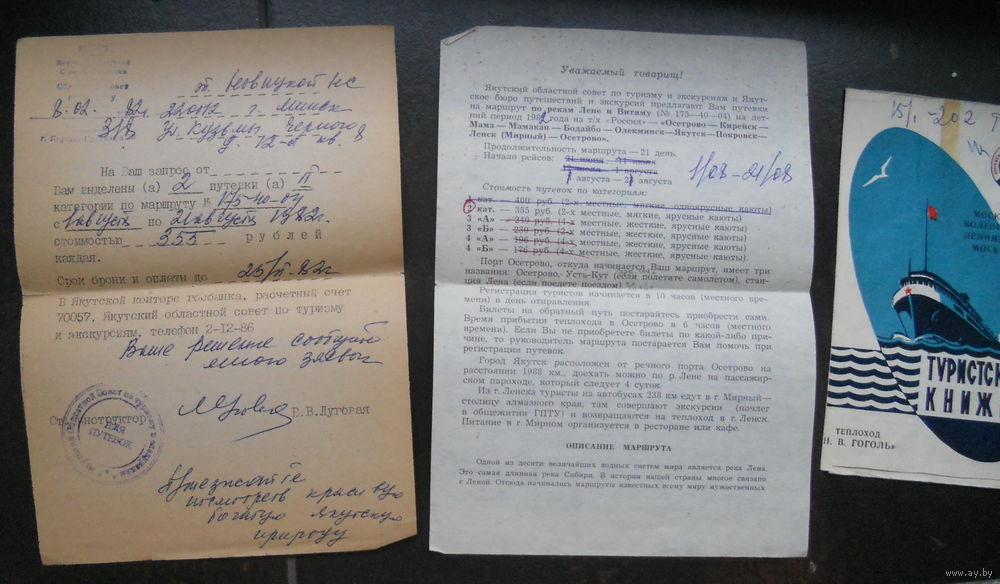 т. Новицкой НС
8.02. 82г. 220012 г. Минск
318 ул. Кузьмы Черного
д. 12-а кв. 8
На Ваш запрос от
Вам выделены (а) 2 путевки (а) II
категории по маршруту № 175-40-04
с 1 августа по 21 августа 1982г.
стоимостью 355 рублей
каждая.
Срок брони и оплаты до 25/II-82г
В Якутской конторе госбанка, расчетный счет
70057, Якутский областной совет по туризму
и экскурсиям, телефон 2-12-86
Ваше решение сообщите
Ст. инструктор В.В.Луговая
ДЛЯ
ПУТЕВОК
Приезжайте
посмотреть красивую
богатую якутскую
природу
Уважаемый товарищ!
Якутский областной совет по туризму и экскурсиям и Якут-
ское бюро путешествий и экскурсий предлагают Вам путевки
на маршрут по рекам Лене и Витиму (№ 175—40—04) на лет-
ний период 1982 года на т/х «Россия» — «Осетрово — Киренск —
Мама — Мамакан — Бодайбо — Олекминск — Якутск — Покровск —
Ленск (Мирный) — Осетрово».
Продолжительность маршрута — 21 день.
Начало рейсов: 21 июня 11 июля
1 августа
1 августа — 21 августа
1/08 - 21/08
Стоимость путевок по категориям:
1 кат. — 400 руб. (2-х местные, мягкие, одноярусные каюты)
2 кат. — 355 руб. (2-х местные, мягкие, ярусные каюты)
3 «А» — 240 руб. (4-х местные, жесткие, ярусные каюты)
3 «Б» — 230 руб. (2-х местные, жесткие, ярусные каюты)
4 «А» — 196 руб. (4-х местные, жесткие, ярусные каюты)
4 «Б» — 176 руб. (4-х местные, жесткие, ярусные каюты).
Порт Осетрово, откуда начинается Ваш маршрут, имеет три
названия: Осетрово, Усть-Кут (если полетите самолетом), стан-
ция Лена (если поедете поездом).
Регистрация туристов начинается в 10 часов (местного вре-
мени) в день отправления.
Билеты на обратный путь постарайтесь приобрести сами.
Время прибытия теплохода в Осетрово в 6 часов (местного
времени). Если Вы не приобретете билеты по какой-либо при-
чине, то руководитель маршрута постарается Вам помочь при
регистрации путевок.
Город Якутск расположен от речного порта Осетрово на
расстоянии 1988 км., доехать можно по р. Лене на пассажир-
ском пароходе, который следует 4 суток.
Из г. Ленска туристы на автобусах 238 км едут в г. Мирный —
столицу алмазного края, там совершают экскурсии (ночлег
в общежитии ГПТУ) и возвращаются на теплоход в г. Ленск.
Питание в г. Мирном организуется в ресторане или кафе.
ОПИСАНИЕ МАРШРУТА
Одной из десяти величайших водных систем мира является река Лена.
Это самая длинная река Сибири. В истории нашей страны многое связано
с Леной. Отсюда начинались маршруты известных всему миру мужественных
15/I-202
МОСК
ВОЛГО
ЛЕНИН
МОСК
ТУРИСТСК
КНИЖ
ТЕПЛОХОД
Н. В. ГОГОЛЬ»
www.ay.by